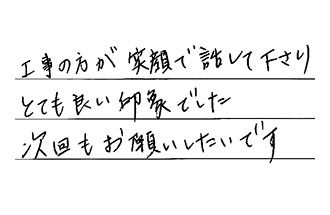 工事の方が笑顔で話して下さり
とても良い印象でした
次回もお願いしたいです